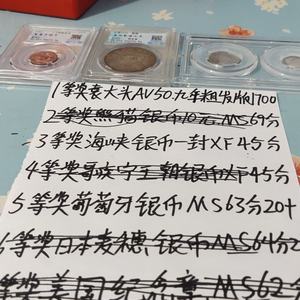 1等奖袁大头AV50.九年粗发版1700
2等奖熊猫银币10元MS69分
3等奖海峡银币一封XF45分
4等奖 王朝银币XF45分
5等奖葡萄牙银币MS63分20+
6等奖日本麦穗银币MS64分2
等奖美国纪 章MS62分